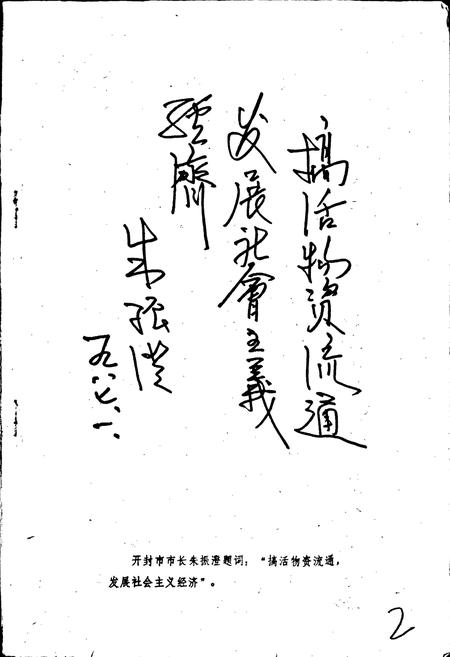 搞活物资流通
发展社會主義
經濟
朱振澄
一九八七、一、
开封市市长朱振澄题词：“搞活物资流通，
发展社会主义经济”。
2